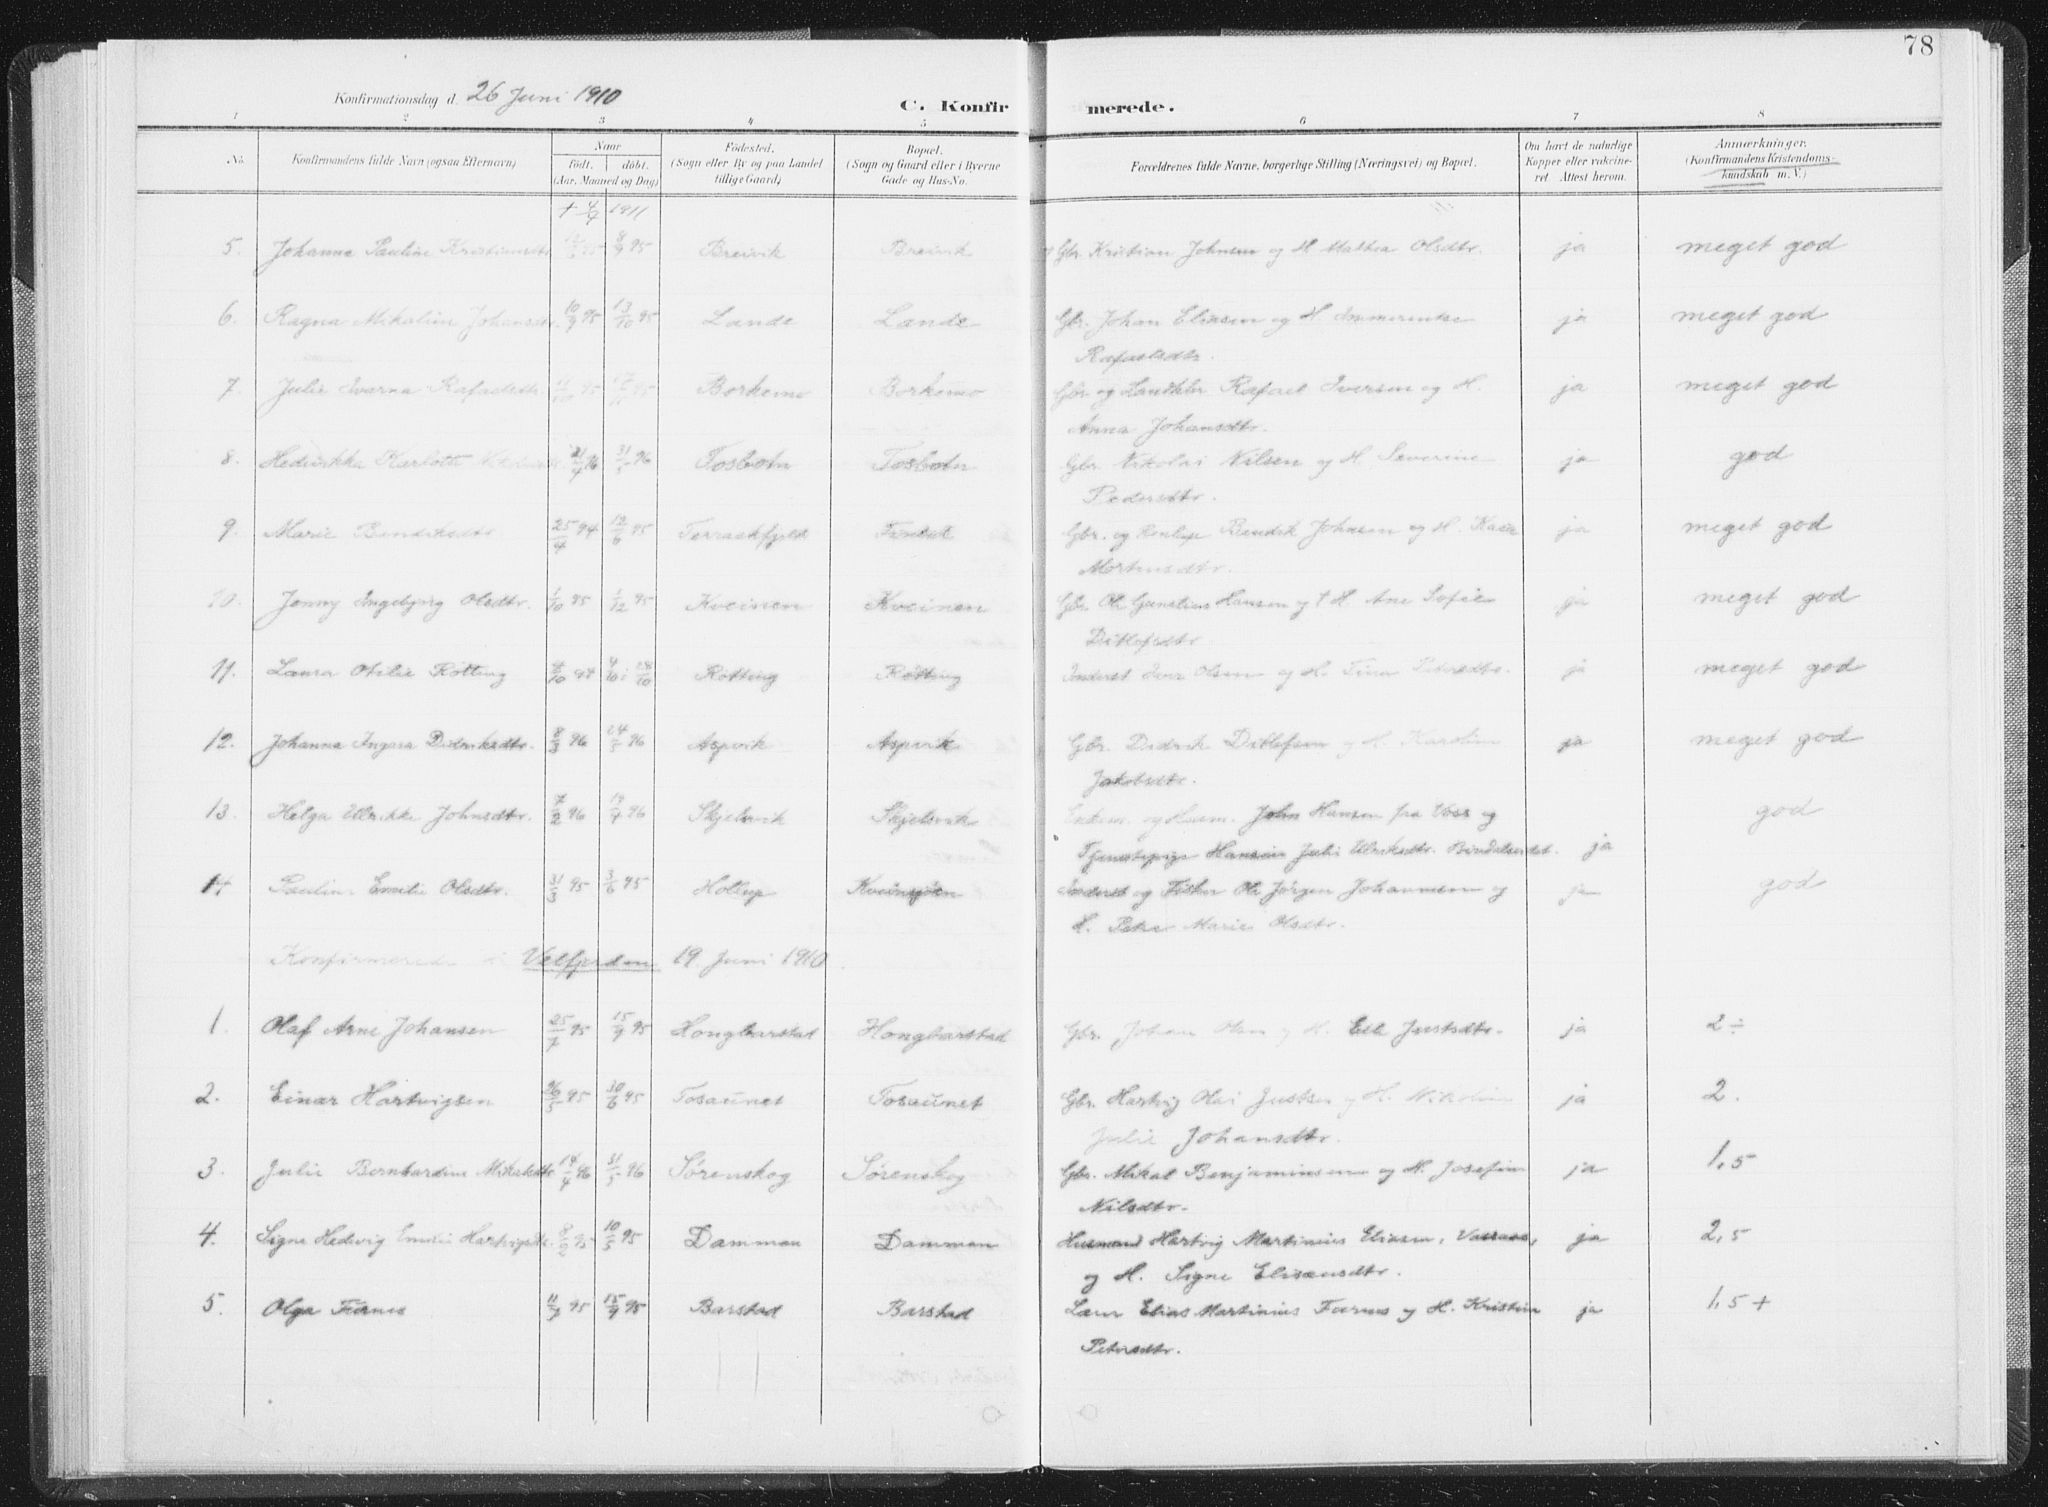 78
Konfirmationsdag d. 26 Juni 1910 C. Konfirmerede.
1 2 3 4 5 6 7 8
No. Konfirmandens fulde Navn (ogsaa Efternavn) Naar födt. döbt. (Aar, Maaned og Dag) Födested. (Sogn eller By og paa Landet tillige Gaard) Bopæl. (Sogn og Gaard eller i Byerne Gade og Hus-No. Forældrenes fulde Navne, borgerlige Stilling (Næringsvei) og Bopæl. Om havt de naturlige Kopper eller vakcineret. Attest herom. Anmærkninger. (Konfirmandens Kristendomskundskab m. V.)
+ 4/7 1911
5. Johanna Pauline Kristiansdtr 95 8/9 95 Breivik Breivik Gbr. Kristian Johnsen og H. Mathea Olsdtr. ja meget god
6. Ragna Mikaline Johansdtr. 10/9 95 13/10 95 Lande Lande Gbr. Johan Eliasen og H. Immerentse ja meget god
Rafaelsdtr.
7. Julie Ivarna Rafaelsdtr. 11/10 95 95 Borkemo Borkemo Gbr. og Landhdlr Rafael Iversen og H. ja meget god
Anna Johansdtr.
8. Hedvikka Karlotte 21/4 96 31/5 96 Tosbotn Tosbotn Gbr. Nikolai Nilsen og H. Severine ja god
Pedersdtr.
9. Marie Bendiksdtr 25/4 94 12/6 95 Terraskfjeld Gbr. og Bendik Johnsen og H. ja meget god
Mortensdtr.
10. Jenny Ingebjørg Olsdtr. 1/10 95 1/12 95 Kveinen Kveinen Gbr. Ole Hansen og † H. Ane Sofie ja meget god
Ditlefsdtr.
11. Laura Otilie Røtting 4/10 94 Røtting Røtting Inderst Jens Olsen og H. Tina Petersdtr. ja meget god
12. Johanna Ingara Didriksdtr. 8/3 96 24/5 96 Aspvik Aspvik Gbr. Didrik Ditlefsen og H. Karoline ja meget god
Jakobsdtr.
13. Helga Ulrikke Johnsdtr. 7/2 96 19/7 96 Skjelsvik Skjelsvik Enkem. og Husm. John Hansen fra Voss og god
Tjenestepige Hansine Julie Ulriksdtr. Bindalseidet. ja
14 Pauline Emelie Olsdtr. 31/3 95 3/6 95 Holtup Kveinsjøen Inderst og Fisker Ole Jørgen Johannesen og ja god
H. Petra Marie Olsdtr.
Konfirmerede i Velfjorden 19. Juni 1910.
1. Olaf Arne Johansen 25/7 95 15/9 95 Hongbarstad Hongbarstad Gbr. Johan Olsen og H. Elle Justsdtr. ja 2 ÷
2. Einar Hartvigsen 26/5 95 30/6 95 Tosaunet Tosaunet Gbr. Hartvig Olai Justsen og H. Nikoline ja 2.
Julie Johansdtr.
3. Julie Bernhardine Mikalsdtr 14/4 96 31/5 96 Sørenskog Sørenskog Gbr. Mikal Benjaminsen og H. Josefine ja 1,5
Nilsdtr.
4. Signe Hedevig Emilie Hartvigsdtr. 8/2 95 10/5 95 Dammen Dammen Husmand Hartvig Martinius Eliasen, Vassaas, ja 2,5
og H. Signe Elisæusdtr.
5. Olga Furnes 11/7 95 15/9 95 Barstad Barstad Elias Martinius Furnes og H. Kristine ja 1,5 +
Petersdtr.